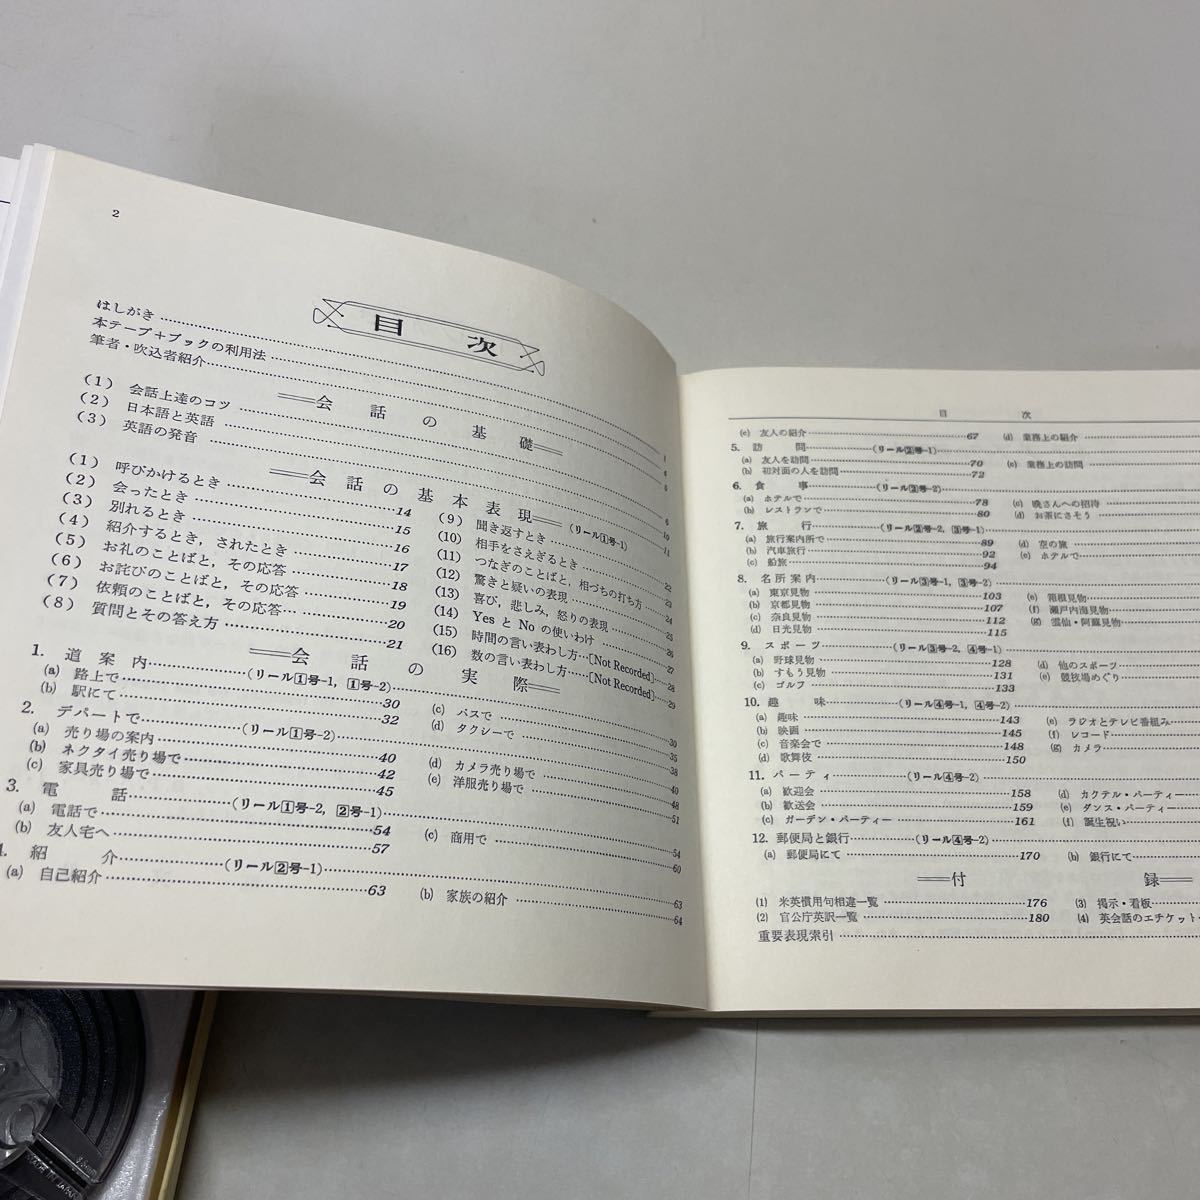 2
目次
はしがき
本テープ+ブックの利用法
筆者・吹込者紹介
会話の基礎
(1) 会話上達のコツ 1
(2) 日本語と英語
(3) 英語の発音
会話の基本表現 (リール1号-1)
(1) 呼びかけるとき 14
(2) 会ったとき 15
(3) 別れるとき 16
(4) 紹介するとき,されたとき 17
(5) お礼のことばと,その応答 18
(6) お詫びのことばと,その応答 19
(7) 依頼のことばと,その応答 20
(8) 質問とその答え方 21
(9) 聞き返すとき 22
(10) 相手をさえぎるとき 23
(11) つなぎのことばと,相づちの打ち方 24
(12) 驚きと疑いの表現 25
(13) 喜び,悲しみ,怒りの表現 26
(14) Yes と No の使いわけ 27
(15) 時間の言い表わし方…[Not Recorded] 28
(16) 数の言い表わし方…[Not Recorded] 29
会話の実際
1. 道案内 (リール1号-1, 1号-2) 30
(a) 路上で 30
(b) 駅にて 32
(c) バスで 35
(d) タクシーで 38
2. デパートで (リール1号-2) 40
(a) 売り場の案内 40
(b) ネクタイ売り場で 42
(c) 家具売り場で 45
(d) カメラ売り場で 48
(e) 洋服売り場で 51
3. 電話 (リール1号-2, 2号-1) 54
(a) 電話で 54
(b) 友人宅へ 57
(c) 商用で 60
4. 紹介 (リール2号-1) 63
(a) 自己紹介 63
(b) 家族の紹介 64
目次
(c) 友人の紹介 67
(d) 業務上の紹介
5. 訪問 (リール2号-1)
(a) 友人を訪問 70
(b) 初対面の人を訪問 72
(c) 業務上の訪問
6. 食事 (リール2号-2)
(a) ホテルで 78
(b) レストランで 80
(c) 晩さんへの招待
(d) お茶にさそう
7. 旅行 (リール2号-2, 3号-1)
(a) 旅行案内所で 89
(b) 汽車旅行 92
(c) 船旅 94
(d) 空の旅
(e) ホテルで
8. 名所案内 (リール3号-1, 3号-2)
(a) 東京見物 103
(b) 京都見物 107
(c) 奈良見物 112
(d) 日光見物 115
(e) 箱根見物
(f) 瀬戸内海見物
(g) 雲仙・阿蘇見物
9. スポーツ (リール3号-2, 4号-1)
(a) 野球見物 128
(b) すもう見物 131
(c) ゴルフ 133
(d) 他のスポーツ
(e) 競牧場めぐり
10. 趣味 (リール4号-1, 4号-2)
(a) 趣味 143
(b) 映画 145
(c) 音楽会で 148
(d) 歌舞伎 150
(e) ラジオとテレビ番組み
(f) レコード
(g) カメラ
11. パーティ (リール4号-2)
(a) 歓迎会 158
(b) 歓送会 159
(c) ガーデン・パーティー 161
(d) カクテル・パーティー
(e) ダンス・パーティー
(f) 誕生祝い
12. 郵便局と銀行 (リール4号-2)
(a) 郵便局にて 170
(b) 銀行にて
付録
(1) 米英慣用句相違一覧 176
(2) 官公庁英訳一覧 180
(3) 掲示・看板
(4) 英会話のエチケット
重要表現索引
MADE IN JAPAN